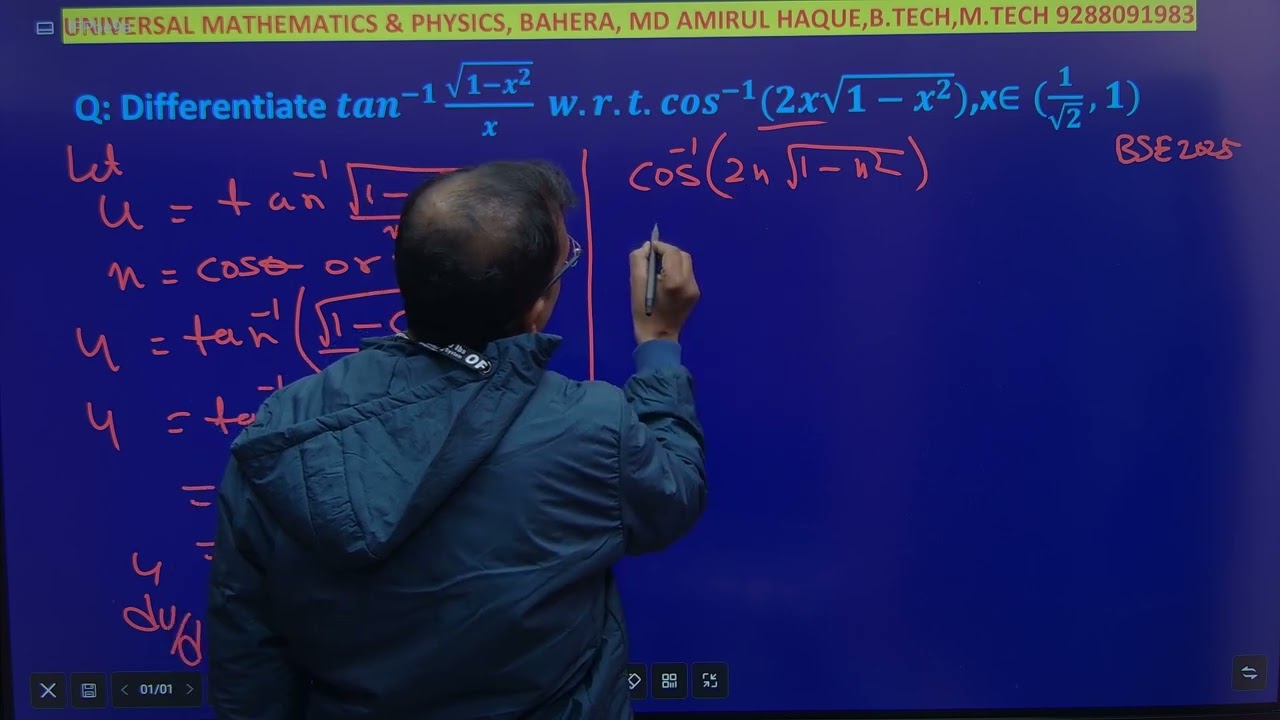 UNIVERSAL MATHEMATICS & PHYSICS, BAHERA, MD AMIRUL HAQUE,B.TECH,M.TECH 9288091983
Q: Differentiate tan⁻¹ √(1−x²)/x w.r.t. cos⁻¹(2x√(1−x²)),x∈ (1/√2, 1)
BSE2025
Let
u = tan⁻¹ √1−
x = cosθ or
u = tan⁻¹(√1−
u =
=
=
u
du/d
cos⁻¹(2x √(1−x²))
OF
01/01